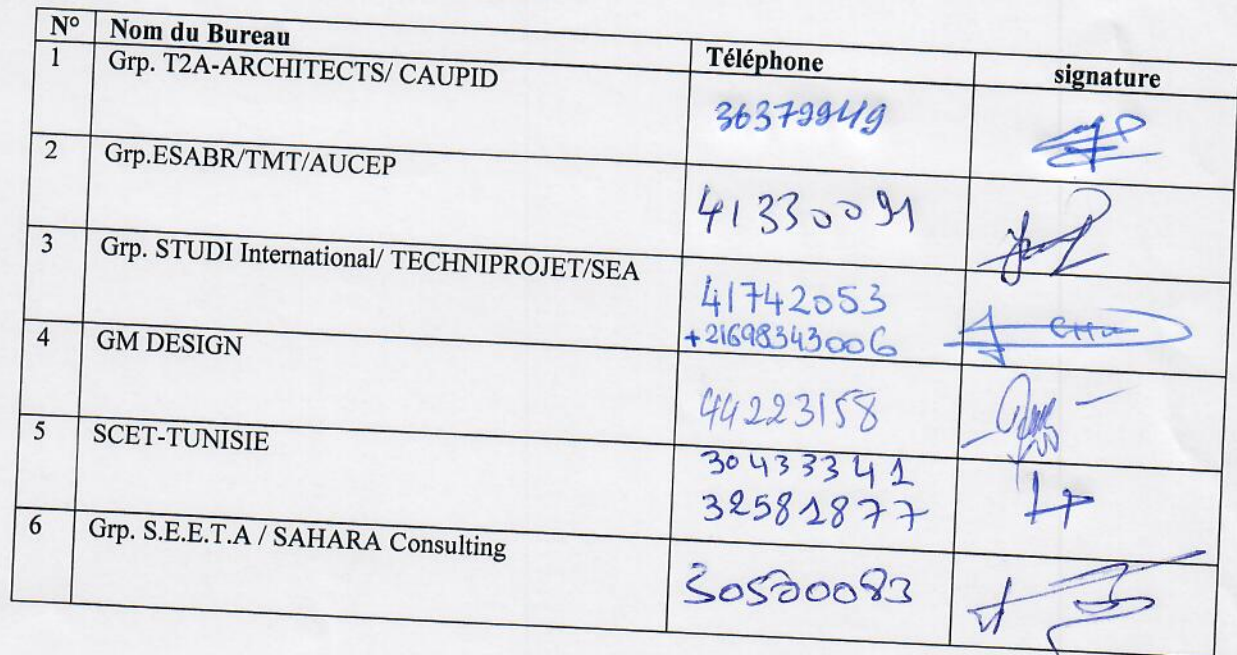 N° Nom du Bureau Téléphone signature
1 Grp. T2A-ARCHITECTS/ CAUPID 36379949
2 Grp.ESABR/TMT/AUCEP 41330091
3 Grp. STUDI International/ TECHNIPROJET/SEA 41742053
+21698343006
4 GM DESIGN 44223158
5 SCET-TUNISIE 30433341
32581877
6 Grp. S.E.E.T.A / SAHARA Consulting